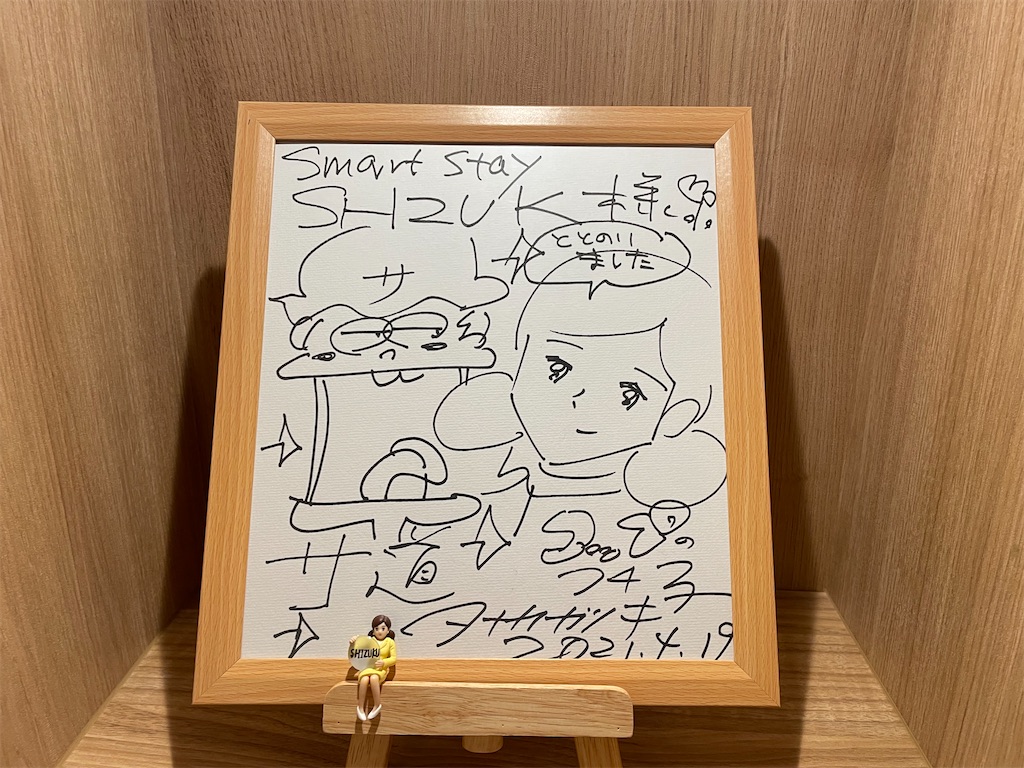 Smart Stay
SHIZUKU様
ととのい
ました
サ
サ道
フチ子
タナカカツキ
2021.4.19
SHIZUKU